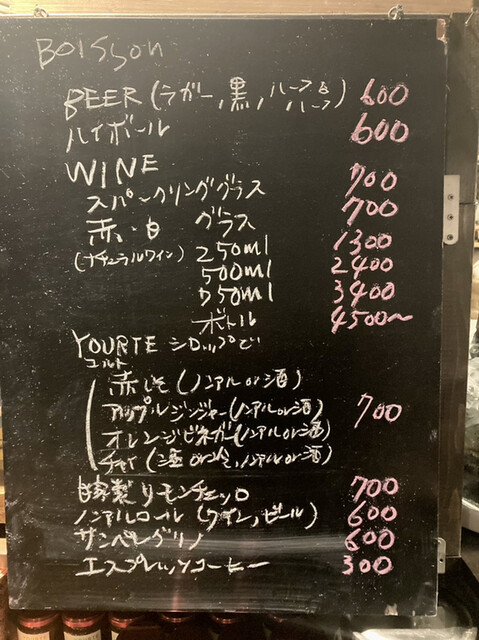 Boisson
BEER (ラガー, 黒, ハーフ&ハーフ) 600
ハイボール 600
WINE
スパークリンググラス 700
赤・白 グラス 700
(ナチュラルワイン) 250ml 1300
500ml 2400
750ml 3400
ボトル 4500〜
YOURTE シロップで
ユルト
赤しそ (ノンアル or 酒)
アップルジンジャー (ノンアル or 酒) 700
オレンジビネガー (ノンアル or 酒)
チャイ (温 or 冷, ノンアル or 酒)
自家製リモンチェッロ 700
ノンアルコール (ワイン, ビール) 600
サンペレグリノ 600
エスプレッソコーヒー 300